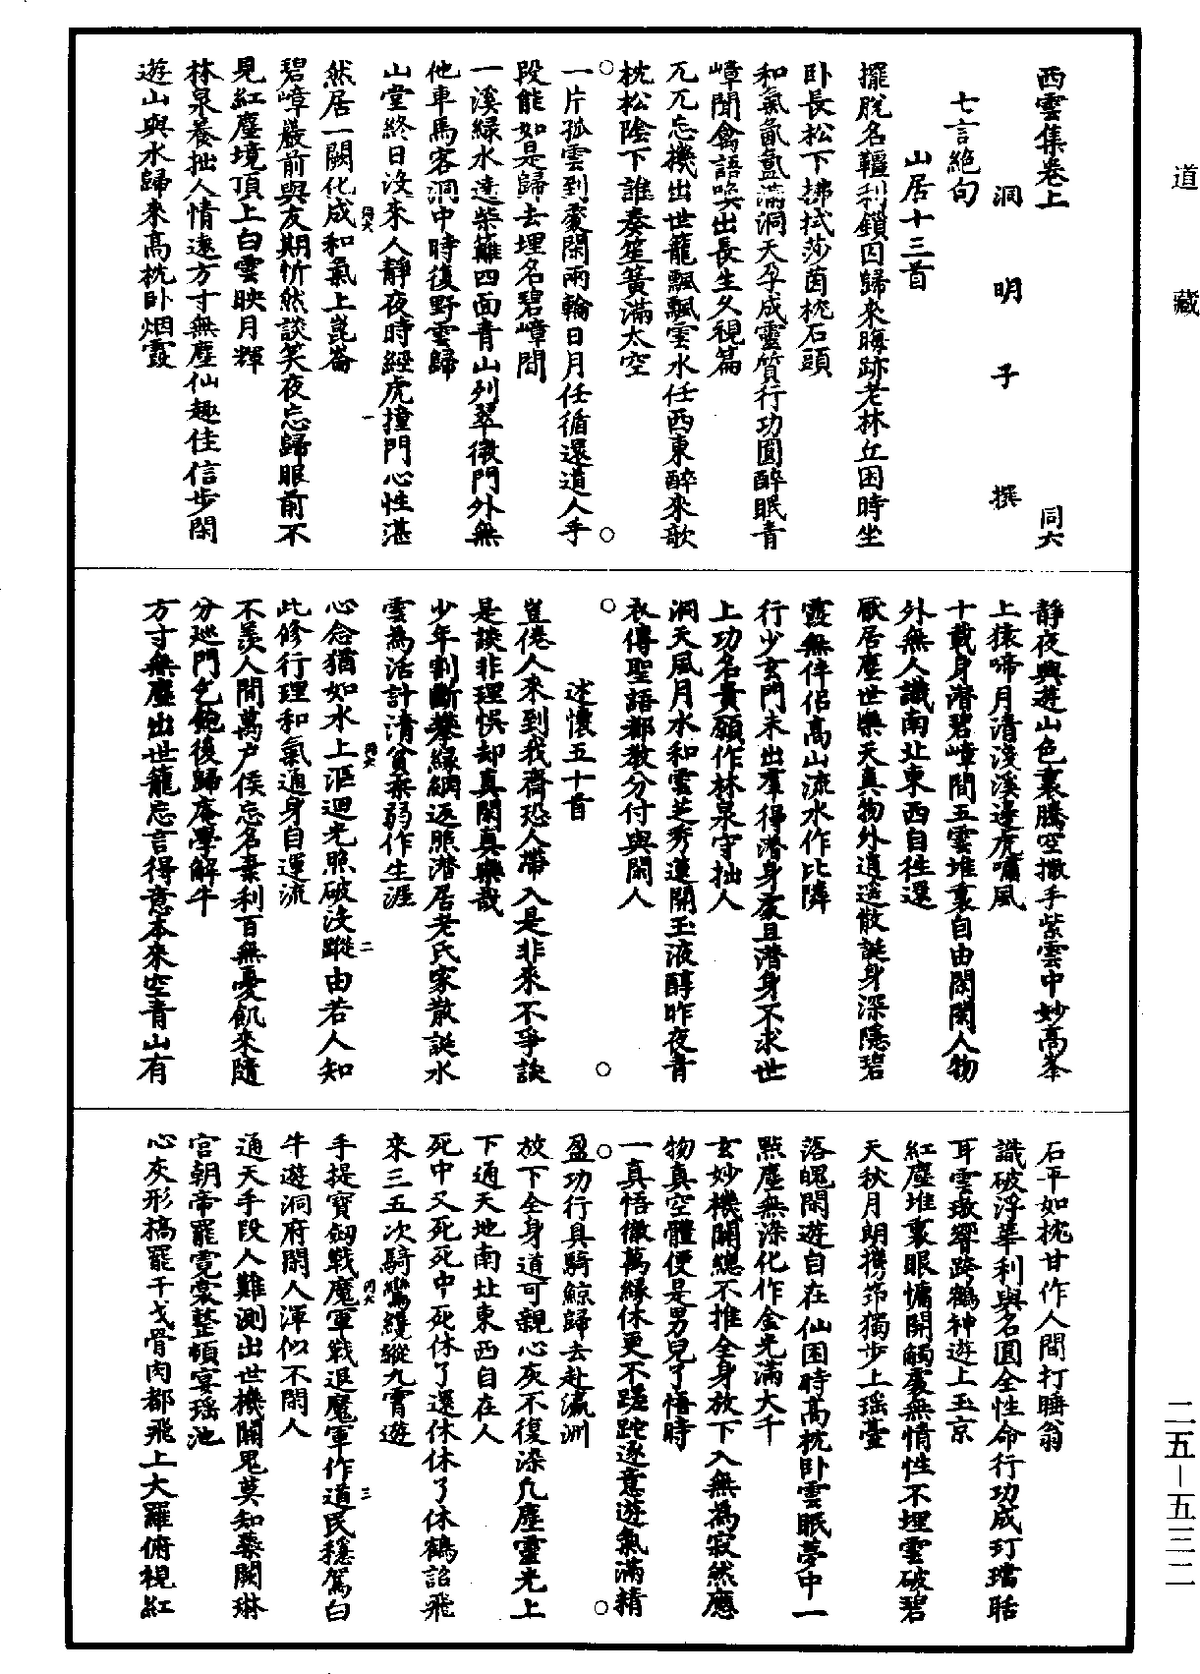 道藏
西雲集卷上 同六
洞明子撰
七言絕句
山居十三首
擺脫名韁利鎖囚歸來晦跡老林丘困時坐
卧長松下拂拭莎茵枕石頭
和氣氤氳滿洞天孕成靈質行功圓醉眠青
嶂聞禽語喚出長生久視篇
兀兀忘機出世籠飄飄雲水任西東醉來歌
枕松陰下誰奏笙簧滿太空
一片孤雲到處閑兩輪日月任循還道人手
段能如是歸去埋名碧嶂間
一溪綠水遶柴籬四面青山列翠微門外無
他車馬客洞中時復野雲歸
山堂終日沒來人靜夜時經虎撞門心性湛
然居一闕化成和氣上崑崙
碧嶂巖前與友期忻然談笑夜忘歸眼前不
見紅塵境頂上白雲映月輝
林泉養拙人情遠方寸無塵仙趣佳信步閑
遊山與水歸來高枕卧烟霞
同六 一
靜夜興遊山色裏騰空撒手紫雲中妙高峯
上猿啼月清淺溪邊虎嘯風
十載身潛碧嶂間五雲堆裏自由閑閑人物
外無人識南北東西自往還
厭居塵世樂天真物外逍遥散誕身深隱碧
霞無伴侣高山流水作比隣
行少玄門未出羣得潛身處且潛身不求世
上功名貴願作林泉守拙人
洞天風月水和雲芝秀蓮開玉液醇昨夜青
衣傳聖語都教分付與閑人
述懷五十首
豈倦人來到我齋恐人帶入是非來不爭談
是談非理悞却真閑真樂哉
少年割斷攀緣網返照潛居老氏家散誕水
雲為活計清貧柔弱作生涯
心念猶如水上漚迴光照破沒蹤由若人知
此修行理和氣通身自運流
不羨人間萬户侯忘名棄利百無憂飢來隨
分巡門乞飽後歸庵學解牛
方寸無塵出世籠忘言得意本來空青山有
同六 二
石平如枕甘作人間打睡翁
識破浮華利與名圓全性命行功成玎璫聒
耳雲璈響跨鶴神遊上玉京
紅塵堆裏眼慵開觸處無情性不埋雲破碧
天秋月朗攜筇獨步上瑶臺
落魄閑遊自在仙困時高枕卧雲眠夢中一
點塵無染化作金光滿大千
玄妙機關總不推全身放下入無為寂然應
物真空體便是男兒了悟時
一真悟徹萬緣休更不蹉跎逐意遊氣滿精
盈功行具騎鯨歸去赴瀛洲
放下全身道可親心灰不復染凡塵靈光上
下通天地南北東西自在人
死中又死死中死休了還休休了休鶴詔飛
來三五次騎鸞纔縱九霄遊
手提寶劒戰魔軍戰退魔軍作道民穩駕白
牛遊洞府閑人渾似不閑人
通天手段人難測出世機關鬼莫知蘂闕琳
宮朝帝罷霓裳整頓宴瑶池
心灰形槁罷干戈骨肉都飛上大羅俯視紅
同六 三
二五－五三二